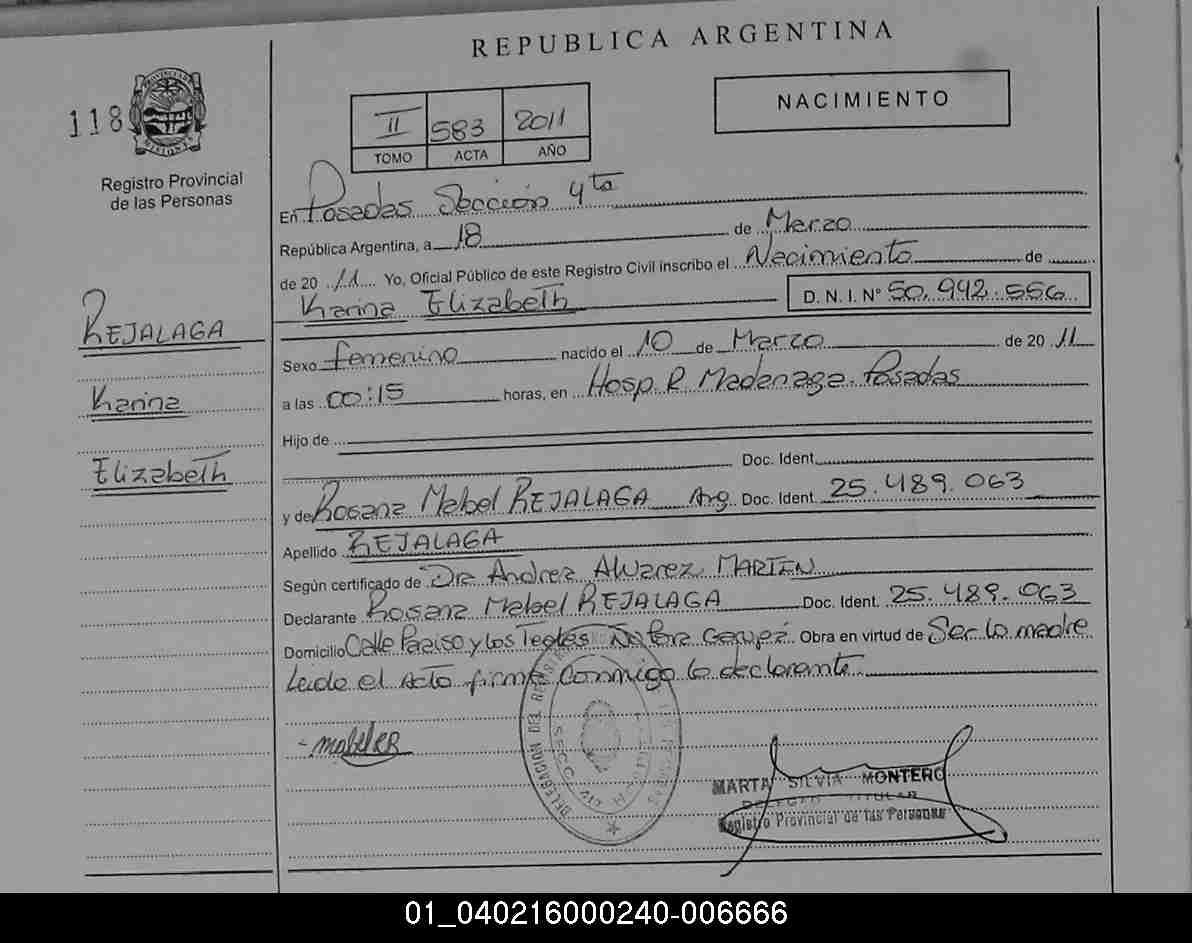 REPUBLICA ARGENTINA
NACIMIENTO
118
PROVINCIA DE
MISIONES
Registro Provincial
de las Personas
II 583 2011
TOMO ACTA AÑO
En Posadas Sección 4ta
República Argentina, a 18 de Marzo
de 2011 Yo, Oficial Público de este Registro Civil inscribo el Nacimiento de
Karina Elizabeth D. N. I. Nº 50.992.556
REJALAGA
Karina
Elizabeth
Sexo femenino nacido el 10 de Marzo de 2011
a las 00:15 horas, en Hosp. R. Madariaga. Posadas
Hijo de
Doc. Ident.
y de Rosana Mabel REJALAGA Arg. Doc. Ident. 25.489.063
Apellido REJALAGA
Según certificado de Dra Andrea Alvarez MARTIN
Declarante Rosana Mabel REJALAGA Doc. Ident. 25.489.063
Domicilio Calle Paraiso y los Teales Obra en virtud de Ser la madre
Leida el acta firma conmigo la declarante.
DELEGACION DEL REGISTRO
LAS PERSONAS
SECC. IV
MARTA SILVIA MONTERO
DELEGADA TITULAR
Registro Provincial de las Personas
01_040216000240-006666